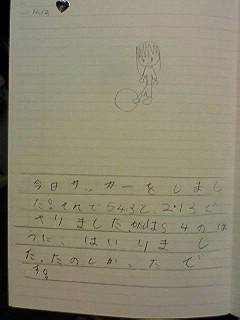 12.12
今日サッカーをしまし
た。それで5 4 3と、2・1 3で
やりました。かんばら 4のほ
うに、はいりまし
た。たのしかったで
す。